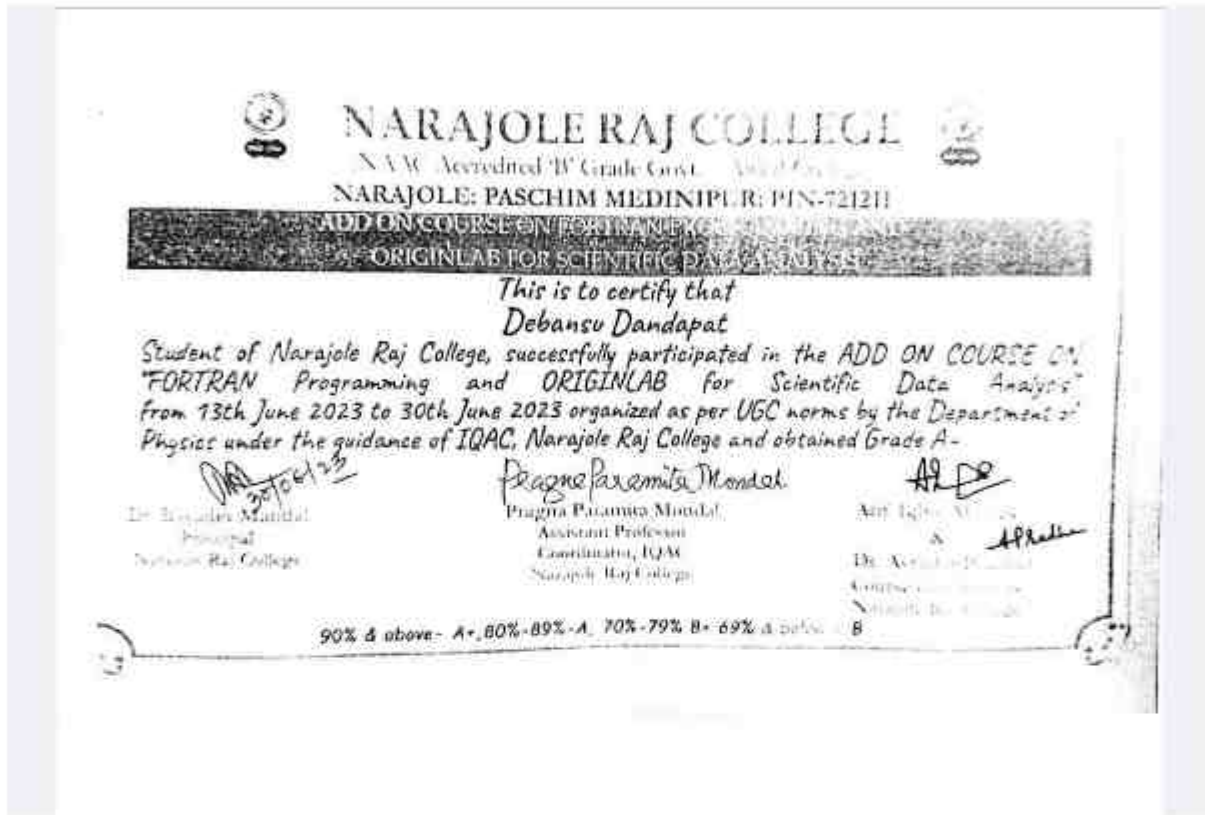 NARAJOLE RAJ COLLEGE
NAAC Accredited 'B' Grade Govt.
NARAJOLE: PASCHIM MEDINIPUR: PIN-721211
ADD ON COURSE ON FORTRAN PROGRAMMING AND
ORIGINLAB FOR SCIENTIFIC DATA ANALYSIS
This is to certify that
Debansu Dandapat
Student of Narajole Raj College, successfully participated in the ADD ON COURSE ON
"FORTRAN Programming and ORIGINLAB for Scientific Data Analysis"
from 13th June 2023 to 30th June 2023 organized as per UGC norms by the Department of
Physics under the guidance of IQAC, Narajole Raj College and obtained Grade A-
30/06/23
Pragna Paramita Mondal
Dr. Mandal
Principal
Narajole Raj College
Pragna Paramita Mondal
Assistant Professor
Coordinator, IQAC
Narajole Raj College
&
Dr.
Course
Narajole Raj College
90% & above- A+, 80%-89%-A, 70%-79% B+ 69% & below B